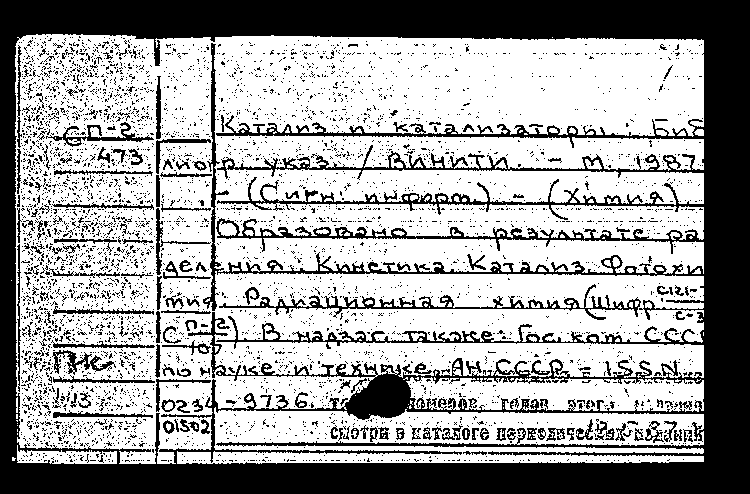 С П-2
473
Катализ и катализаторы: Биб
лиогр. указ. / ВИНИТИ. - М., 1987-
. - (Сигн. информ.) - (Химия).
Образовано в результате ра
деления: Кинетика. Катализ. Фотохи
мия. Радиационная химия (Шифр С121-
С П-2
107) В надзаг. также: Гос. ком. СССР
по науке и технике, АН СССР. = ISSN
0234-9736.
номеров, годов этог.
01502
смотри в каталоге периодических изданий